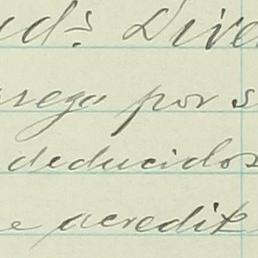 uds. Dive
rega por s
deducidos
e acredit